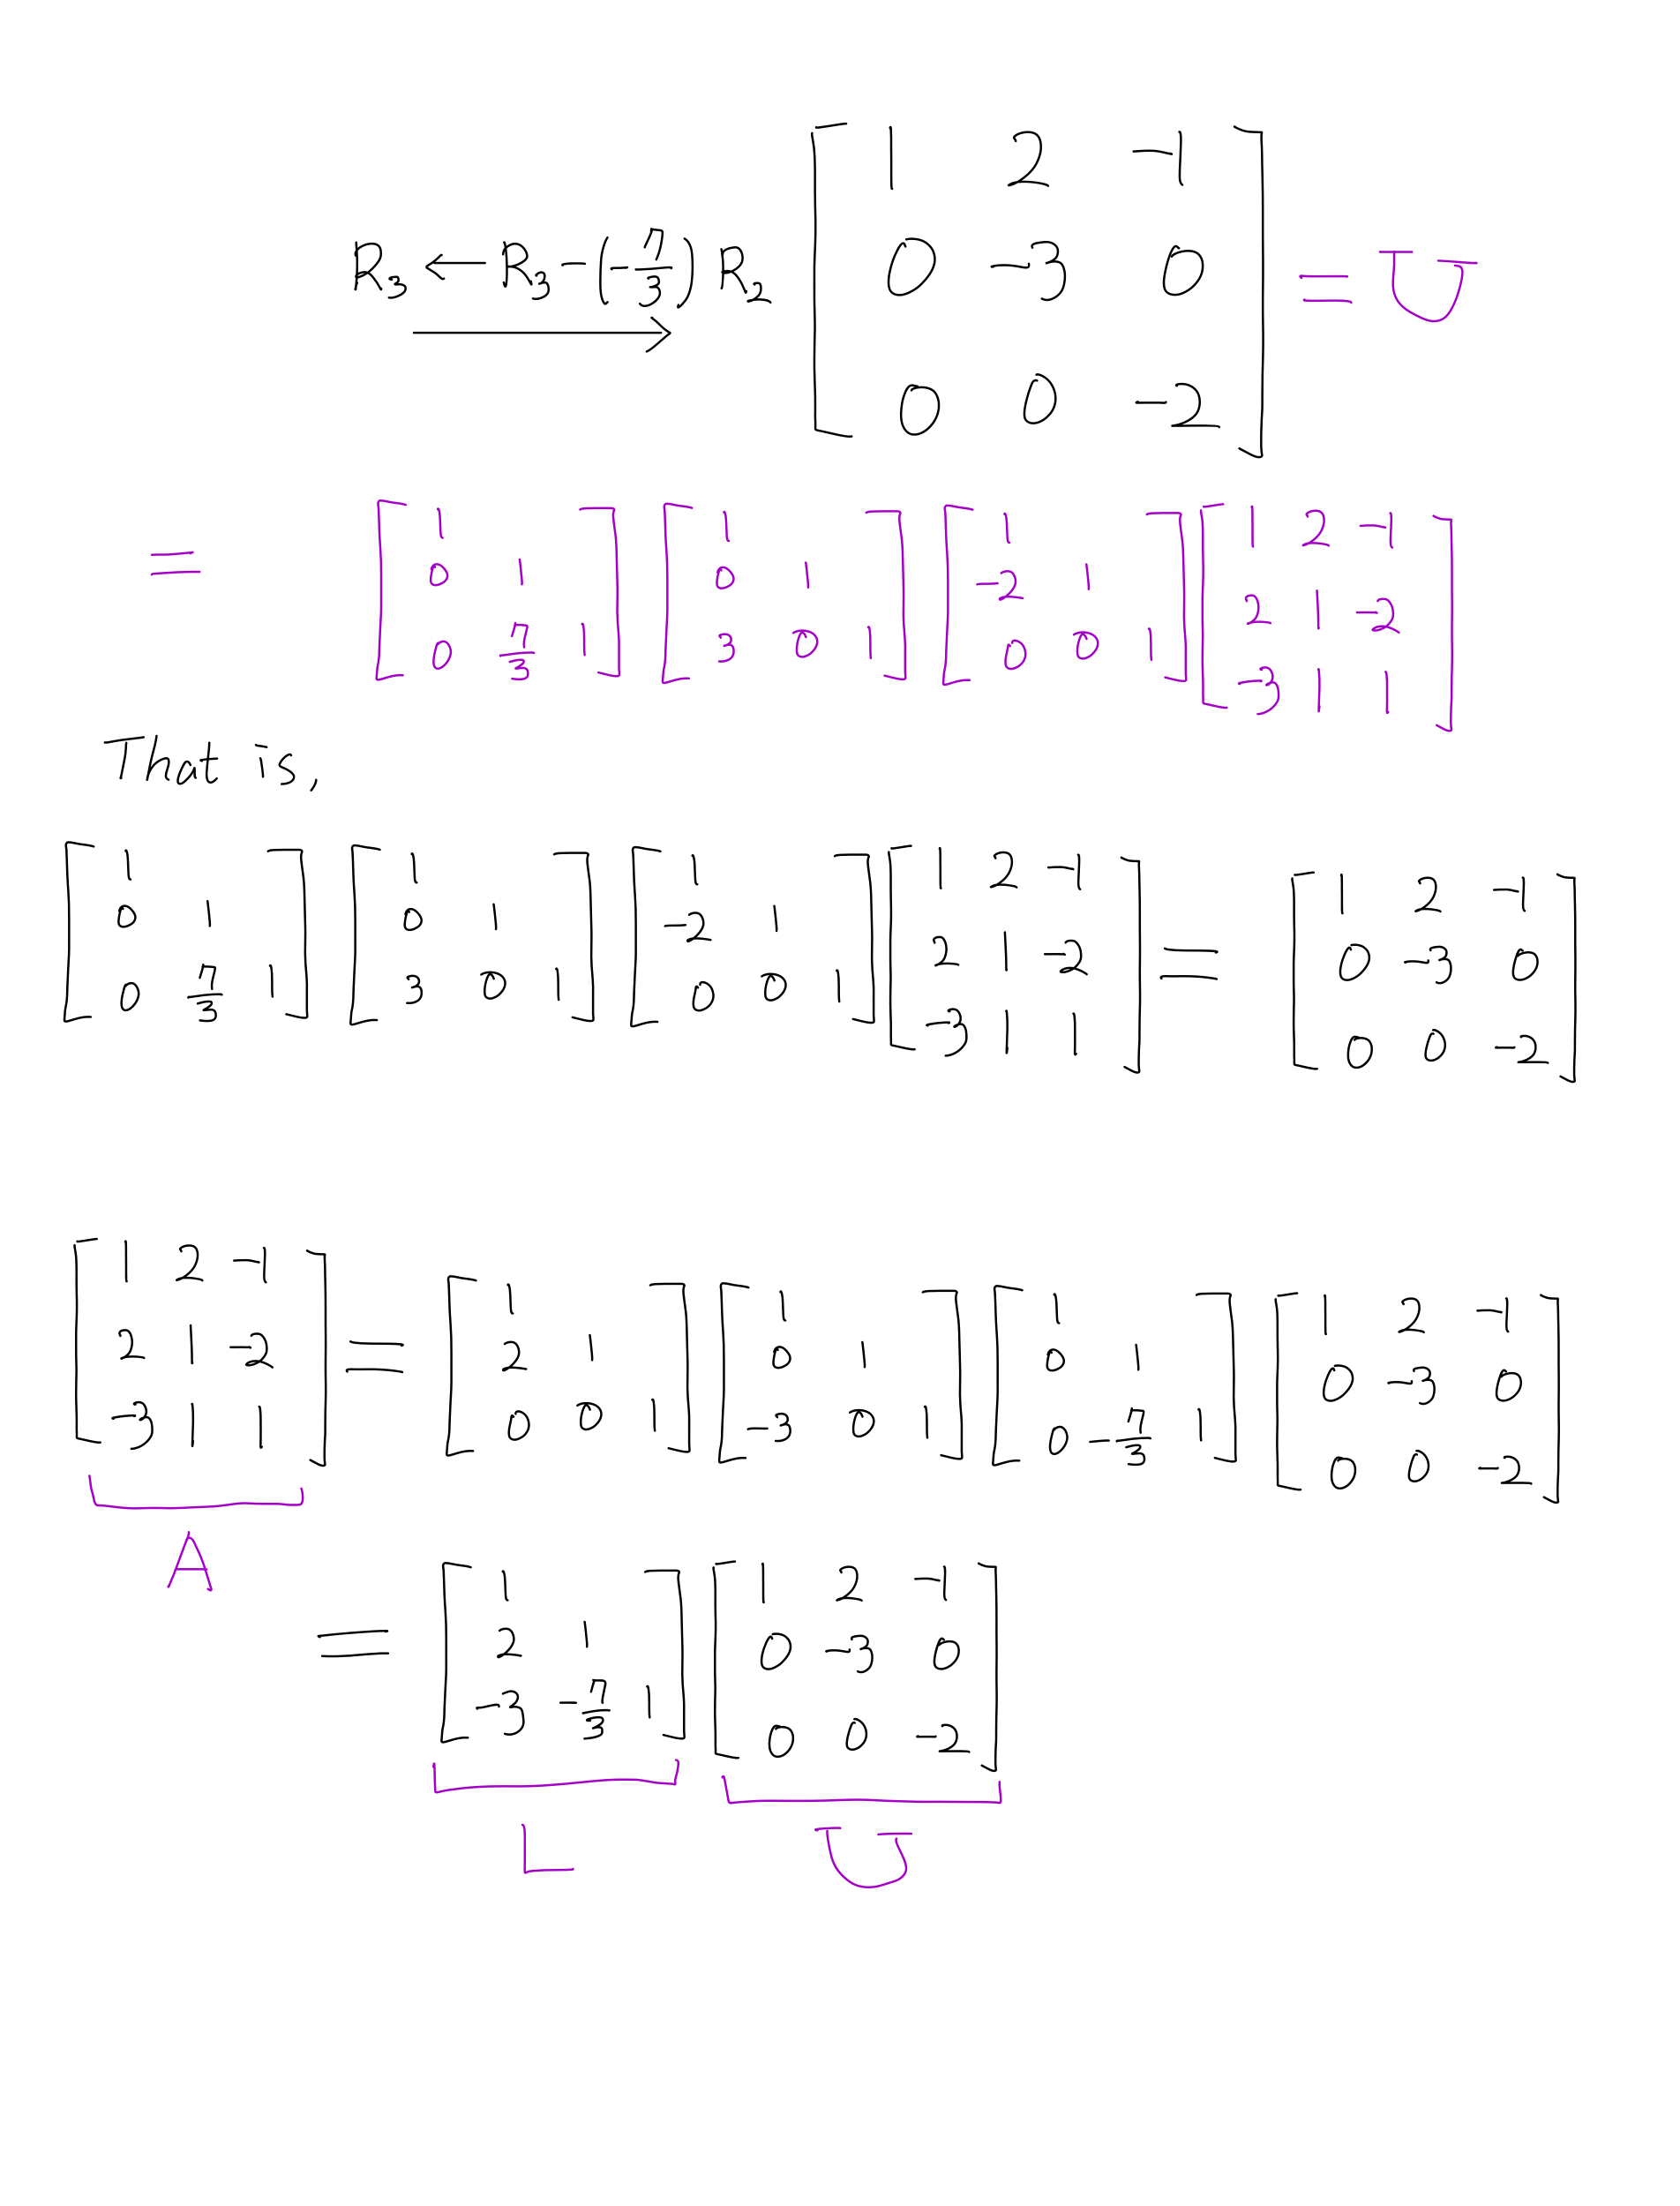 R₃ ← R₃ - (-7/3) R₂ [1 2 -1; 0 -3 0; 0 0 -2] = U
= [1; 0 1; 0 7/3 1] [1; 0 1; 3 0 1] [1; -2 1; 0 0 1] [1 2 -1; 2 1 -2; -3 1 1]
That is,
[1; 0 1; 0 7/3 1] [1; 0 1; 3 0 1] [1; -2 1; 0 0 1] [1 2 -1; 2 1 -2; -3 1 1] = [1 2 -1; 0 -3 0; 0 0 -2]
[1 2 -1; 2 1 -2; -3 1 1] = [1; 2 1; 0 0 1] [1; 0 1; -3 0 1] [1; 0 1; 0 -7/3 1] [1 2 -1; 0 -3 0; 0 0 -2]
A
= [1; 2 1; -3 -7/3 1] [1 2 -1; 0 -3 0; 0 0 -2]
L U